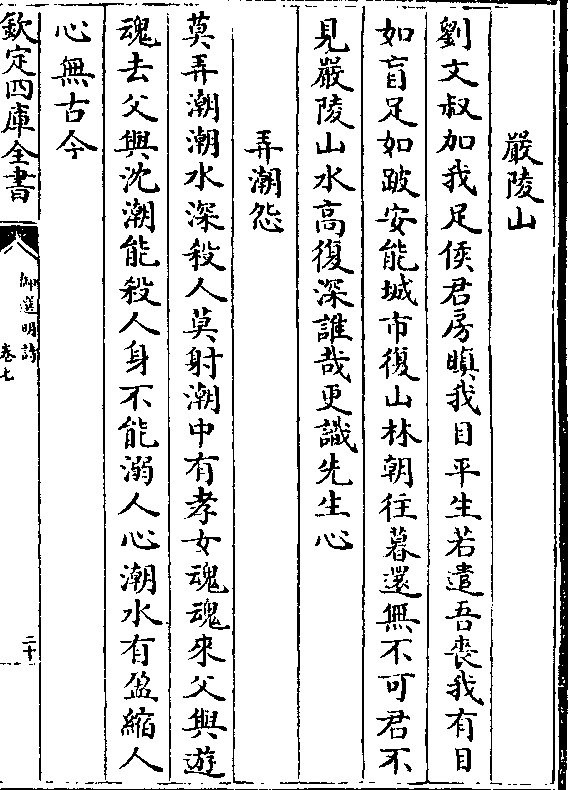 嚴陵山
劉文叔加我足侯君房瞋我目平生若遣吾喪我有目
如盲足如跛安能城市復山林朝往暮還無不可君不
見嚴陵山水高復深誰哉更識先生心
弄潮怨
莫弄潮潮水深殺人莫射潮中有孝女魂魂來父與遊
魂去父與沈潮能殺人身不能溺人心潮水有盈縮人
心無古今
欽定四庫全書
御選明詩
卷七
二十